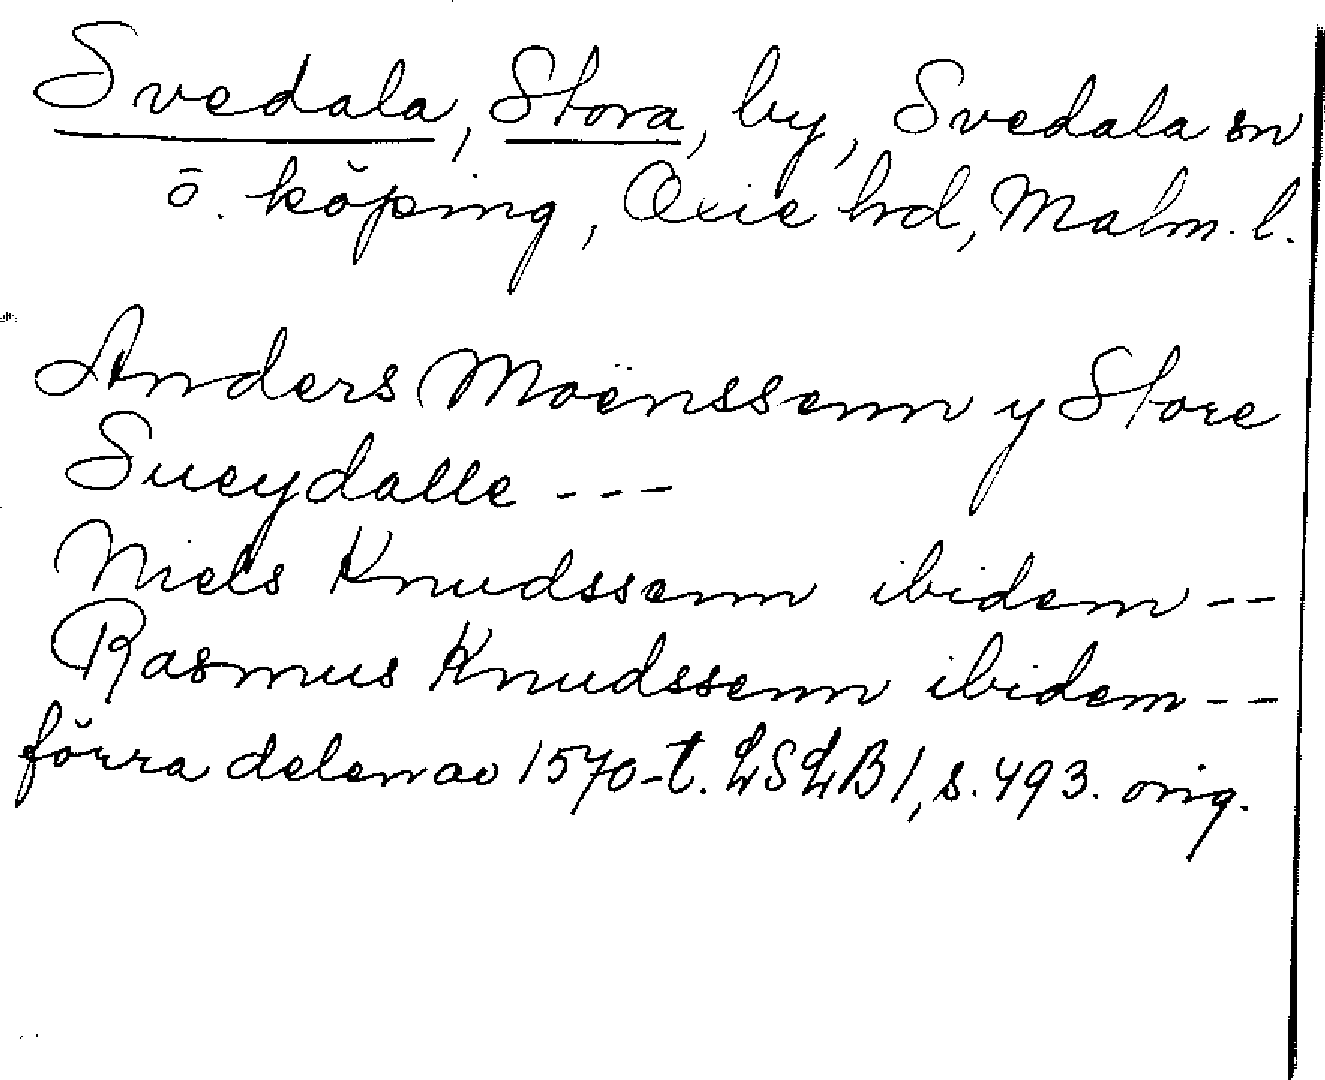 Svedala, Stora, by, Svedala sn
o. köping, Oxie hd, Malm. l.
Anders Moënssenn y Store
Sueydalle ---
Niels Knudssenn ibidem --
Rasmus Knudssenn ibidem --
förra delen av 1570-t. LSLB 1, s. 493. orig.